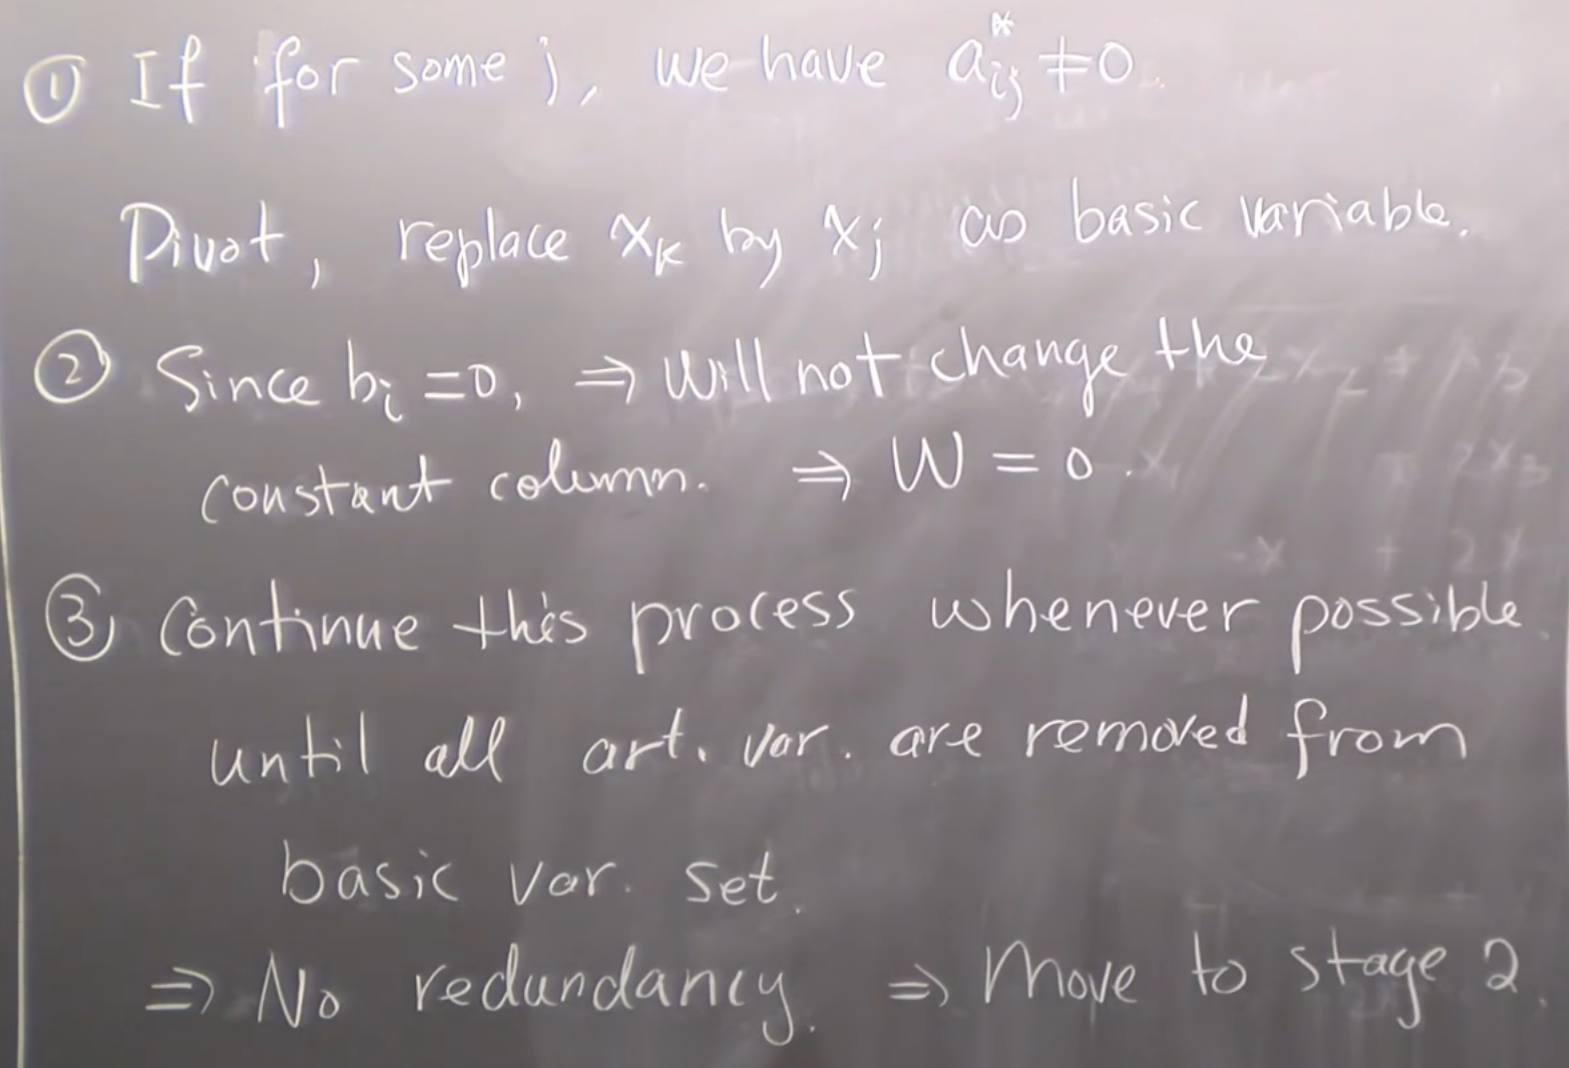 ① If for some j, we have a*ij ≠ 0.
Pivot, replace xk by xj as basic variable.
② Since bi = 0, ⇒ Will not change the
constant column. ⇒ W = 0.
③ Continue this process whenever possible.
until all art. var. are removed from
basic var. set.
⇒ No redundancy. ⇒ Move to stage 2.